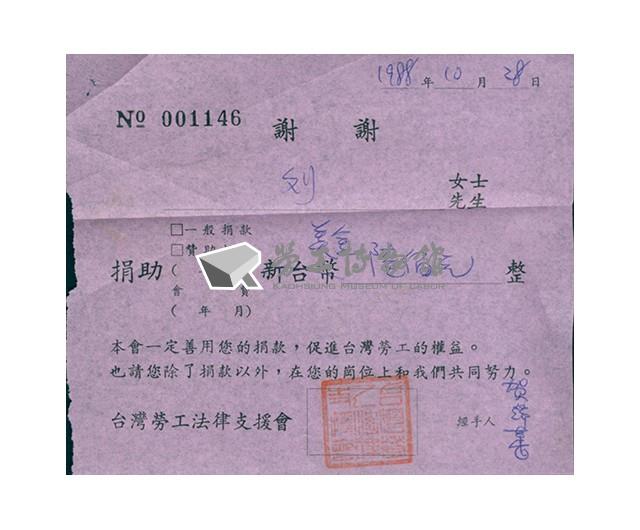 1988年10月28日
No 001146 謝 謝
刘 女士
先生
□一般捐款
□贊助
捐助( 新台幣 美金 陸佰元 整
會 員
( 年 月)
勞工博物館
KAOHSIUNG MUSEUM OF LABOR
本會一定善用您的捐款，促進台灣勞工的權益。
也請您除了捐款以外，在您的崗位上和我們共同努力。
台灣勞工法律支援會 經手人